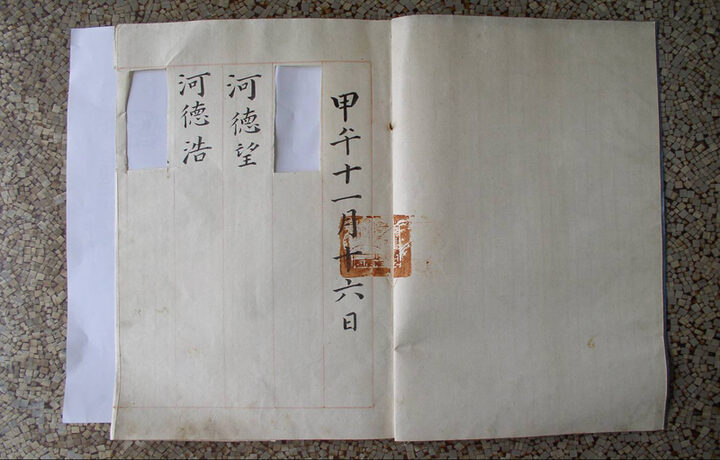 甲午十一月十六日
河德望
河德浩